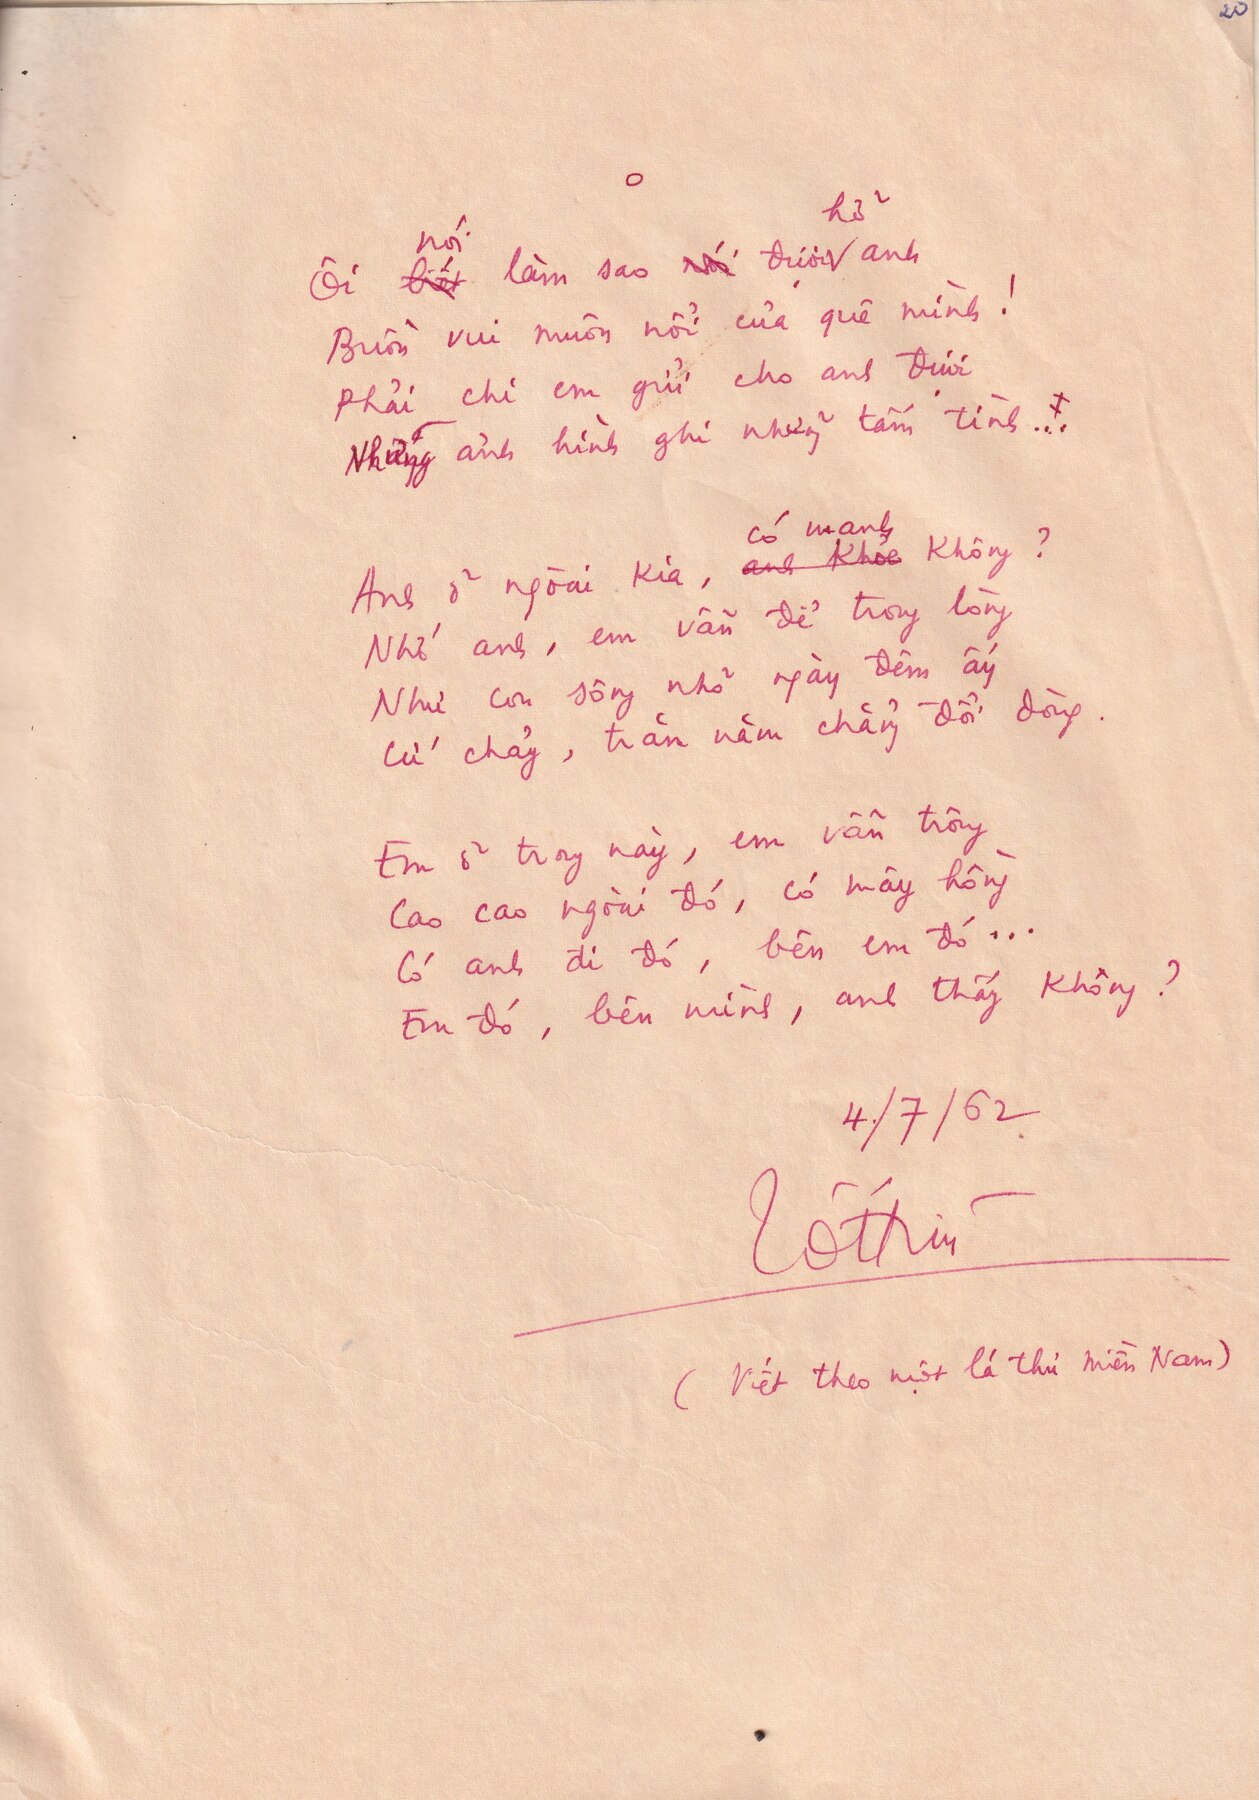 20
hở
nói
Ôi biết làm sao nói được anh
Buồn vui muôn nỗi của quê mình!
Phải chi em gửi cho anh được
Những ảnh hình ghi những tấm tình...
có mạnh
Anh ở ngoài kia, anh khỏe không?
Nhớ anh, em vẫn để trong lòng
Như con sông nhỏ ngày đêm ấy
Cứ chảy, trăm năm chẳng đổi dòng.
Em ở trong này, em vẫn trông
Cao cao ngoài đó, có mây hồng
Có anh đi đó, bên em đó...
Em đó, bên mình, anh thấy không?
4/7/62
Tố Hữu
(Viết theo một lá thư miền Nam)